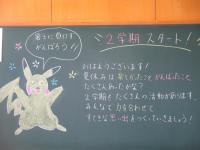 暑さに負けず
がんばろう!!
2学期 スタート!
おはようございます!
夏休みは楽しかったこと、がんばったこと、
たくさんあったかな?
2学期もたくさんの活動があります。
みんなで力を合わせて
すてきな思い出をつくっていきましょう!